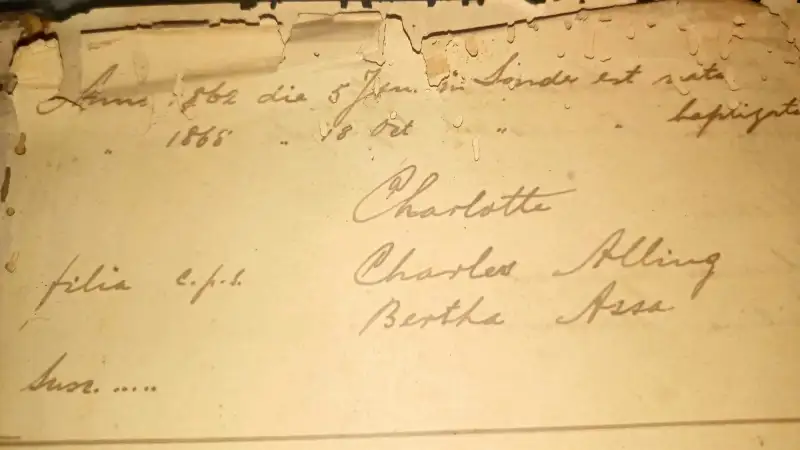 Anno 1862 die 5 Jan. in Sonder est nata
" 1865 " 18 Oct " " baptizata
Charlotte
filia c.p.s. Charles Alling
Bertha Assa
Susc. .....